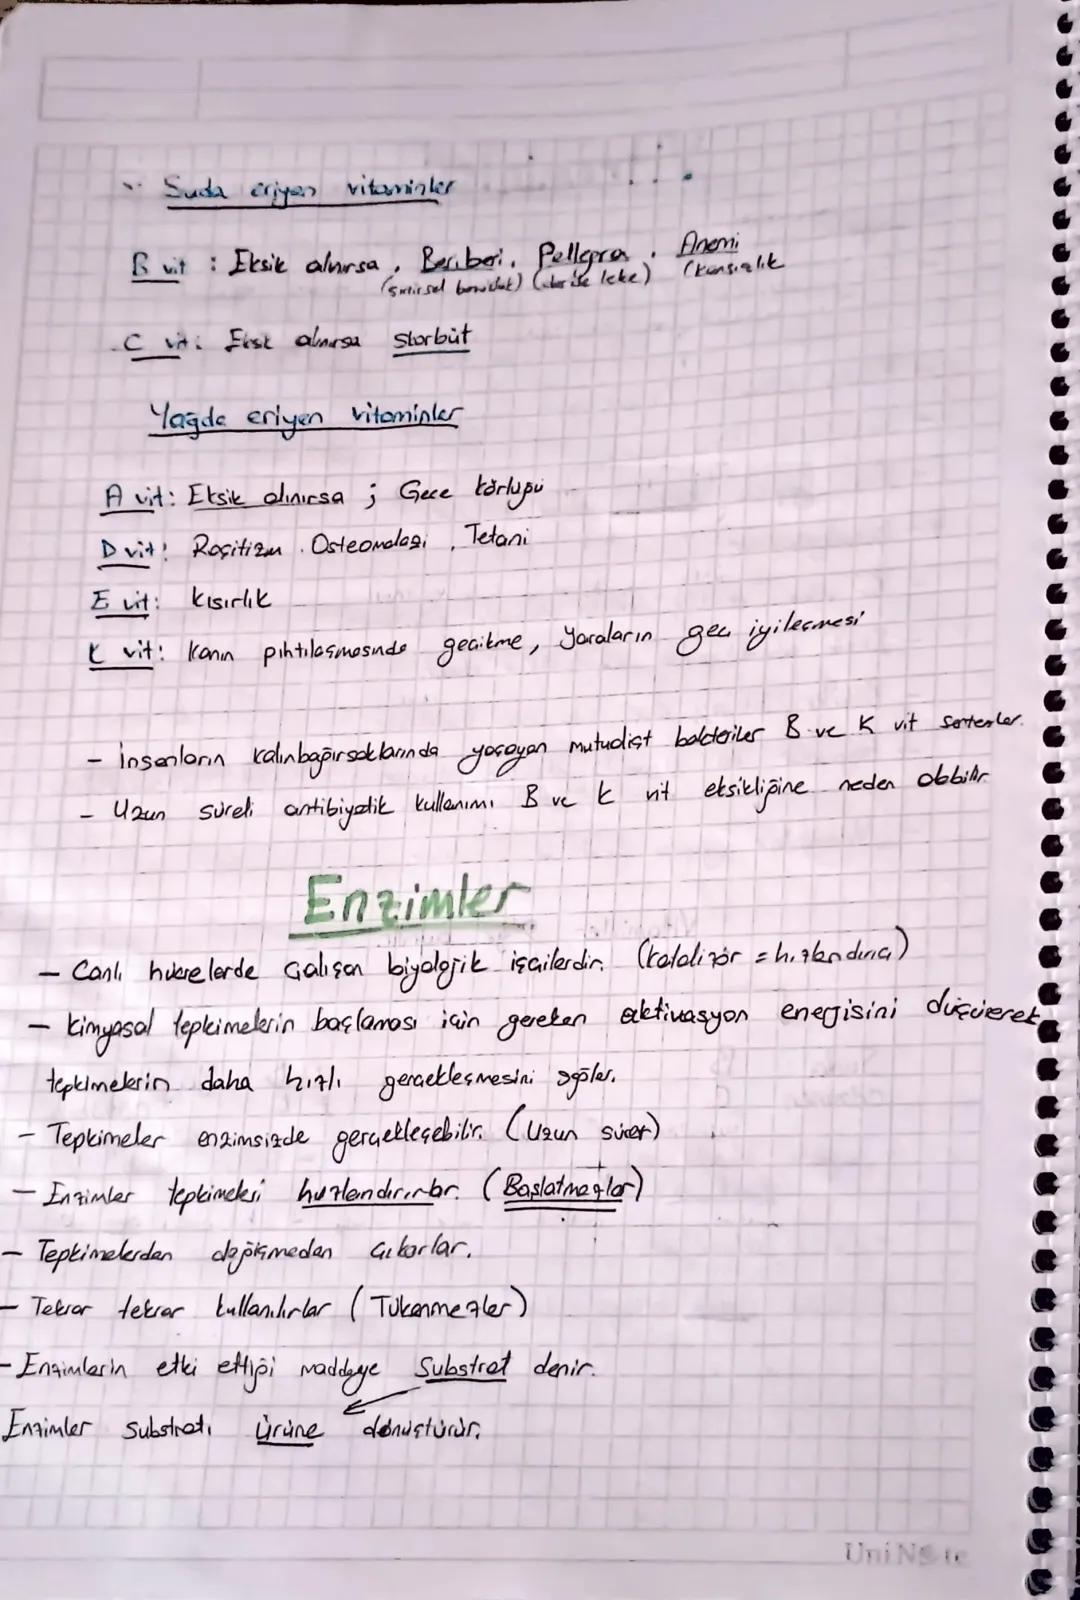 Suda eriyen vitaminler
B vit : Eksik alınırsa, Beriberi, Pellegra, Anemi
(sinirsel bozukluk) (deride leke) (Kansızlık
C vit: Eksik alınırsa Skorbüt
Yağda eriyen vitaminler
A vit: Eksik alınırsa ; Gece körlüğü
D vit: Raşitizm, Osteomalazi, Tetani
E vit: Kısırlık
K vit: Kanın pıhtılaşmasında gecikme, Yaraların geç iyileşmesi
- İnsanların kalınbağırsaklarında yaşayan mutualist bakteriler B ve K vit sentezler.
- Uzun süreli antibiyotik kullanımı B ve K vit eksikliğine neden olabilir
Enzimler
- Canlı hücrelerde çalışan biyolojik işçilerdir. (katalizör = hızlandırıcı)
- Kimyasal tepkimelerin başlaması için gereken aktivasyon energisini düşürerek
tepkimelerin daha hızlı gerçekleşmesini sağlar.
- Tepkimeler enzimsizde gerçekleşebilir. (Uzun sürer)
- Enzimler tepkimeleri hızlandırırlar. (Başlatmazlar)
- Tepkimelerden değişmeden çıkarlar.
- Tekrar tekrar kullanılırlar (Tükenmezler)
- Enzimlerin etki ettiği maddeye Substrat denir.
Enzimler substratı ürüne dönüştürür.
UniNote